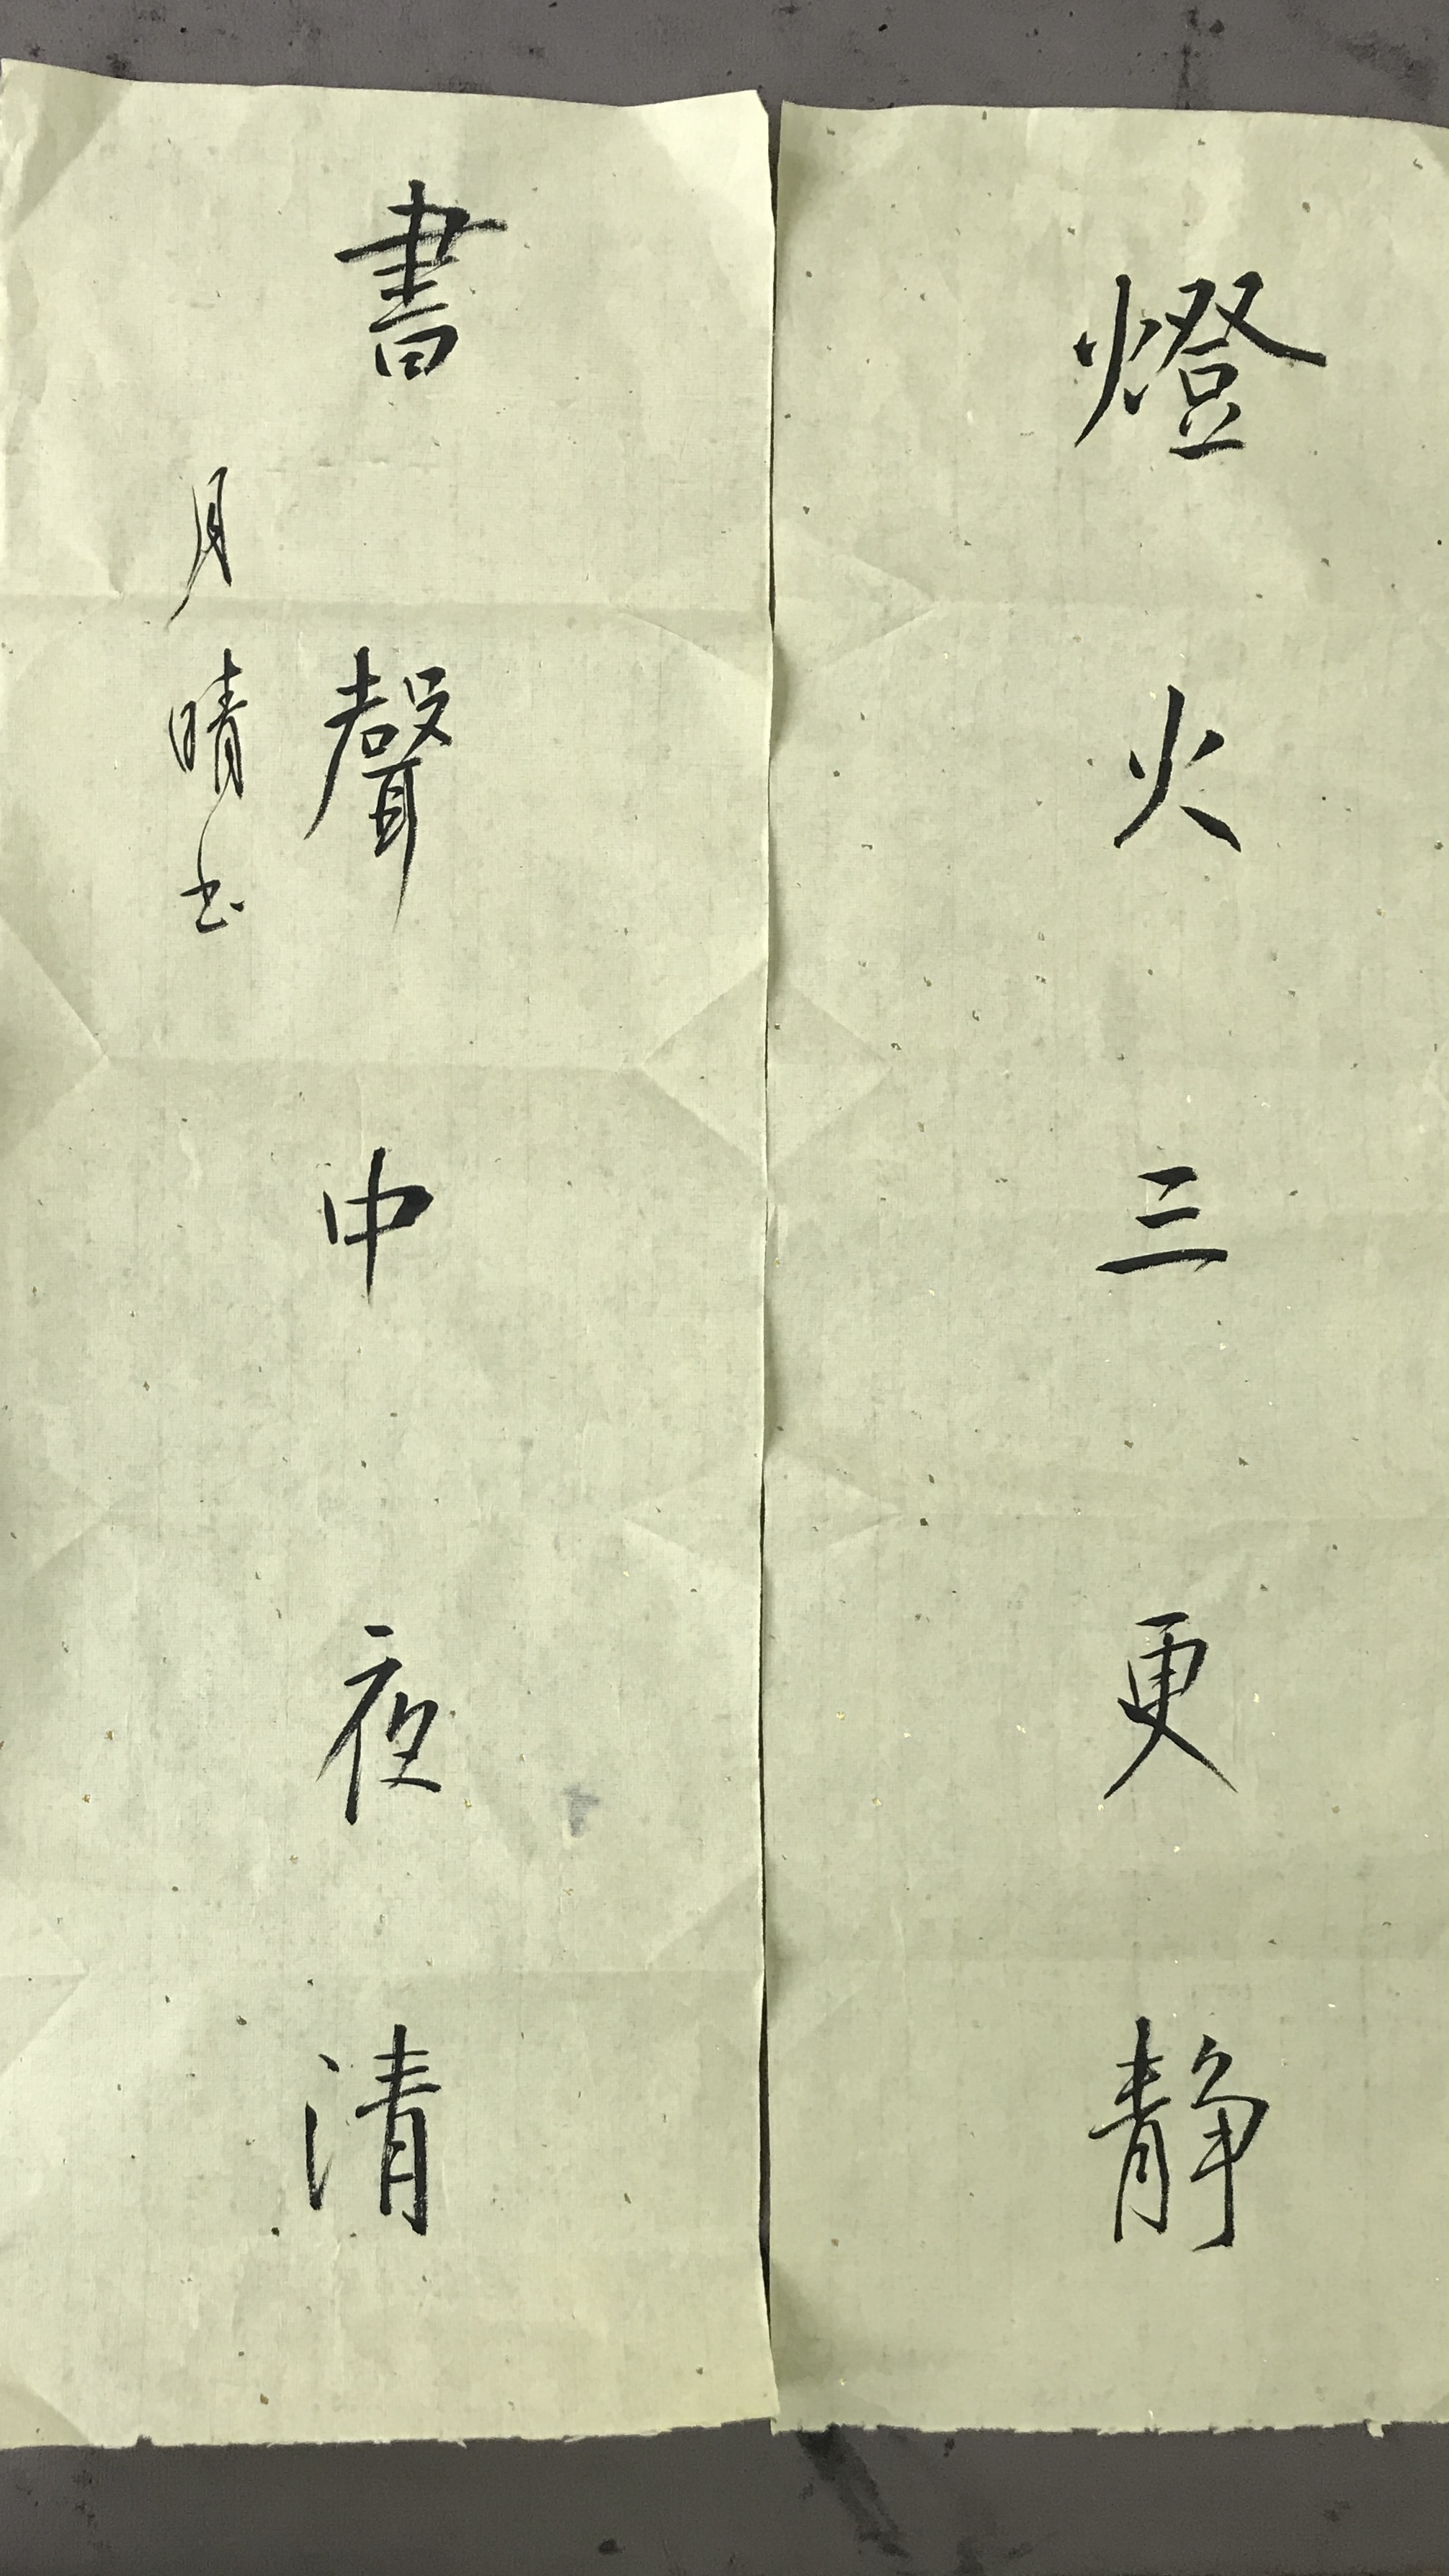 燈火三更静
書聲中夜清
月晴书